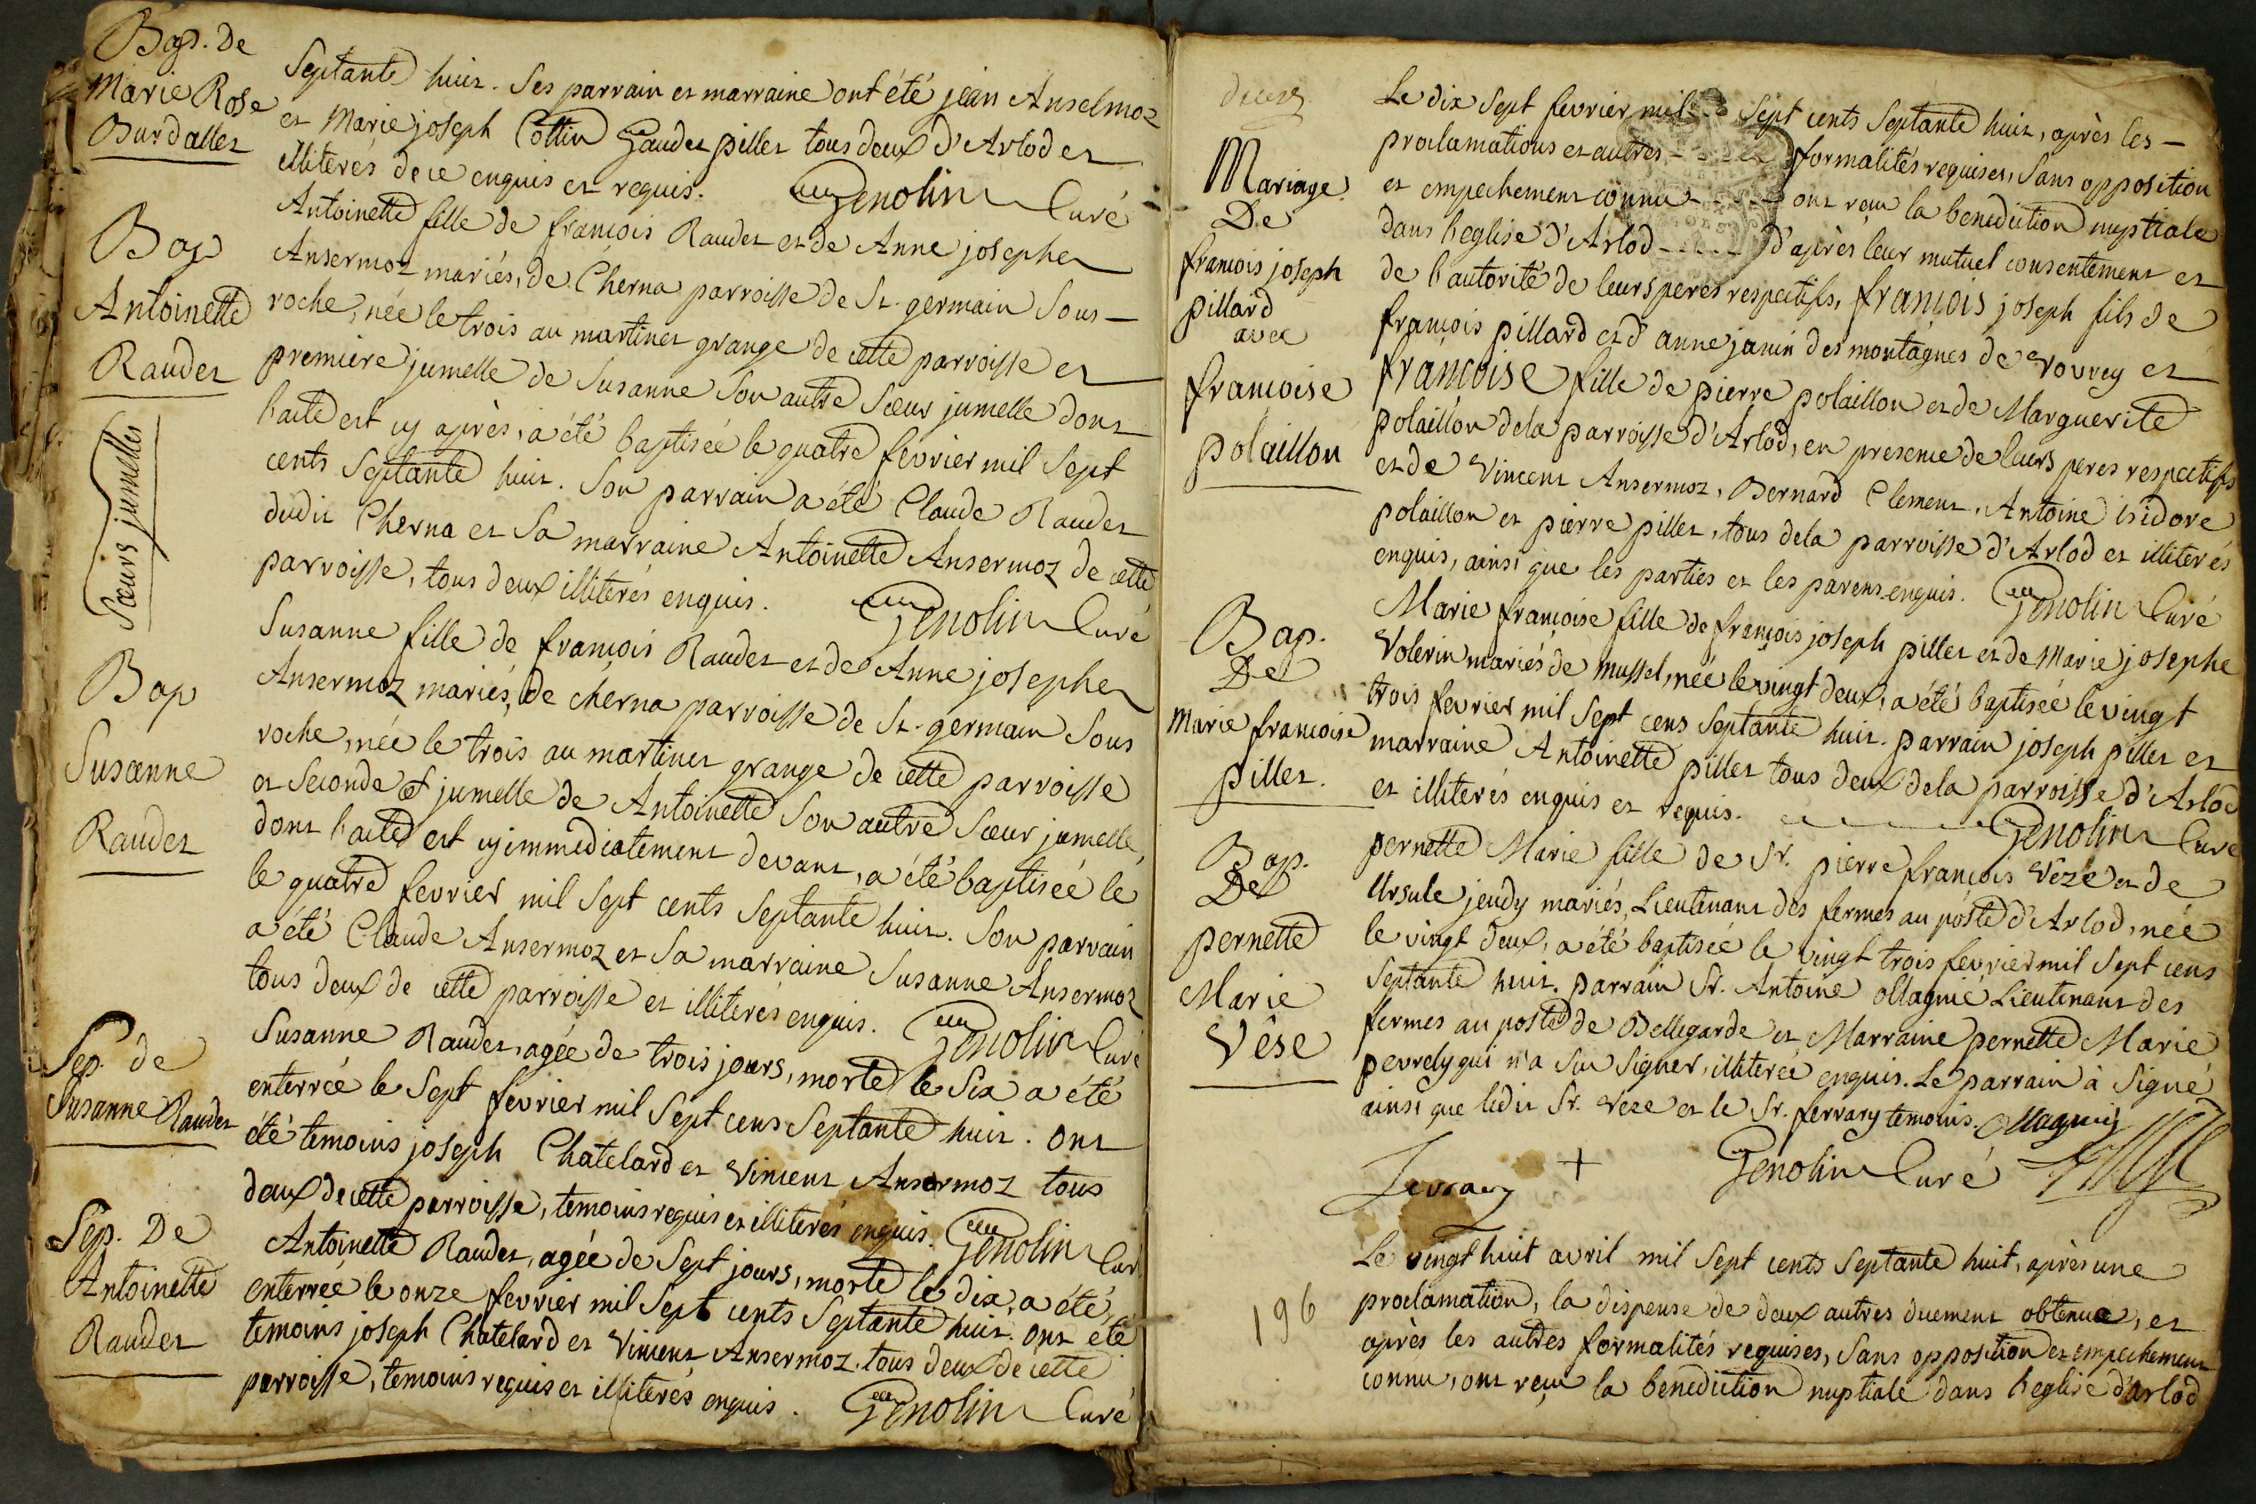 Bap. De
Marie Rose
Burdallet
Septante huit. Ses parrain et marraine ont été jean Anselmoz
et Marie joseph Cottin Gaudet pillet tous deux d'Arlod et
illiterés de ce enquis et requis. Genolin Curé
Bap
Antoinette
Raudet
Sœurs jumelles
Antoinette fille de francois Raudet et de Anne josephe
Ansermoz mariés, de Cherna parroisse de St. germain Sous-
roche, née le trois au martinet grange de cette parroisse et
premiere jumelle de Susanne Son autre Sœur jumelle dont
l'acte est cy après, a été baptisée le quatre fevrier mil Sept
cents Septante huit. Son parrain a été Claude Raudet
dudit Cherna et Sa marraine Antoinette Ansermoz de cette
parroisse, tous deux illiterés enquis. Genolin Curé
Bap
Susanne
Raudet
Susanne fille de francois Raudet et de Anne josephe
Ansermoz mariés, de cherna parroisse de St. germain Sous
roche, née le trois au martinet grange de cette parroisse
et Seconde et jumelle de Antoinette Son autre Sœur jumelle,
dont l'acte est cy immediatement devant, a été baptisée le
le quatre fevrier mil Sept cents Septante huit. Son parrain
a été Claude Ansermoz et Sa marraine Susanne Ansermoz
tous deux de cette parroisse et illiterés enquis. Genolin Curé
Sep. de
Susanne Raudet
Susanne Raudet, agée de trois jours, morte le Six a été
enterrée le Sept fevrier mil Sept cens Septante huit. ont
été temoins joseph Chatelard et Vincent Ansermoz tous
deux de cette parroisse, temoins requis et illiterés enquis. Genolin Curé
Sep. De
Antoinette
Raudet
Antoinette Raudet, agée de Sept jours, morte le dix, a été,
enterrée le onze fevrier mil Sept cents Septante huit. ont été
temoins joseph Chatelard et Vincent Ansermoz, tous deux de cette
parroisse, temoins requis et illiterés enquis. Genolin Curé
Mariage
De
francois joseph
pillard
avec
francoise
polaillon
Le dix Sept fevrier mil Sept cents Septante huit, après les -
proclamations et autres - formalités requises, Sans opposition
et empechement connu - ont reçu la benediction nuptiale
dans l'eglise d'Arlod - d'après leur mutuel consentement et
de l'autorité de leurs peres respectifs, françois joseph fils de
françois pillard et d'anne janin des montagnes de vovrey et
françoise fille de pierre polaillon et de Marguerite
polaillon de la parroisse d'Arlod, en presence de leurs peres respectifs
et de Vincent Ansermoz, Bernard Clement, Antoine isidore
polaillon et pierre pillet, tous de la parroisse d'Arlod et illiterés
enquis, ainsi que les parties et les parens enquis. Genolin Curé
Bap.
De
Marie francoise
pillet.
Marie françoise fille de françois joseph pillet et de Marie josephe
Volerin mariés de mussel, née le vingt deux, a été baptisée le vingt
trois fevrier mil Sept cens Septante huit. parrain joseph pillet et
marraine Antoinette pillet tous deux de la parroisse d'Arlod
et illiterés enquis et requis. Genolin Curé
Bap.
De
pernette
Marie
Vêse
pernette Marie fille de Sr. pierre françois Veze et de
Ursule jeudy mariés, Lieutenant des fermes au poste d'Arlod, née
le vingt deux, a été baptisée le vingt trois fevrier mil Sept cens
Septante huit. parrain Sr. Antoine ollagnié Lieutenant des
fermes au poste de Bellegarde et Marraine pernette Marie
pevrely qui n'a Su Signer, illiterée enquis. Le parrain à Signé
ainsi que ledit Sr. veze et le Sr. ferrary temoins. Ollagnie
+ Genolin Curé
196
Le vingt huit avril mil Sept cents Septante huit, après une
proclamation, la dispense de deux autres duement obtenue, et
après les autres formalités requises, Sans opposition et empechement
connu, ont reçu la benediction nuptiale dans l'eglise d'Arlod